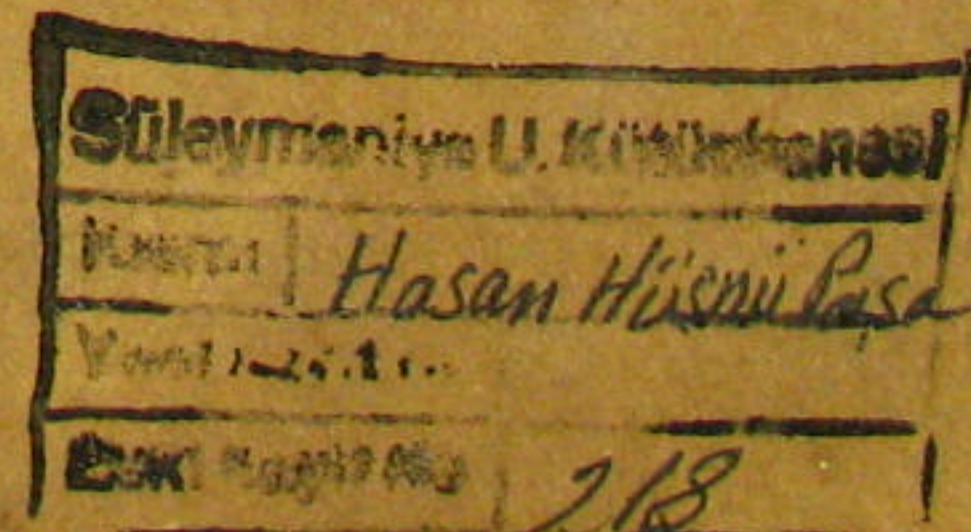 Süleymaniye U. Kütüphanesi
Kısmı Hasan Hüsnü Paşa
Yeni
Eski Kayıt No 218